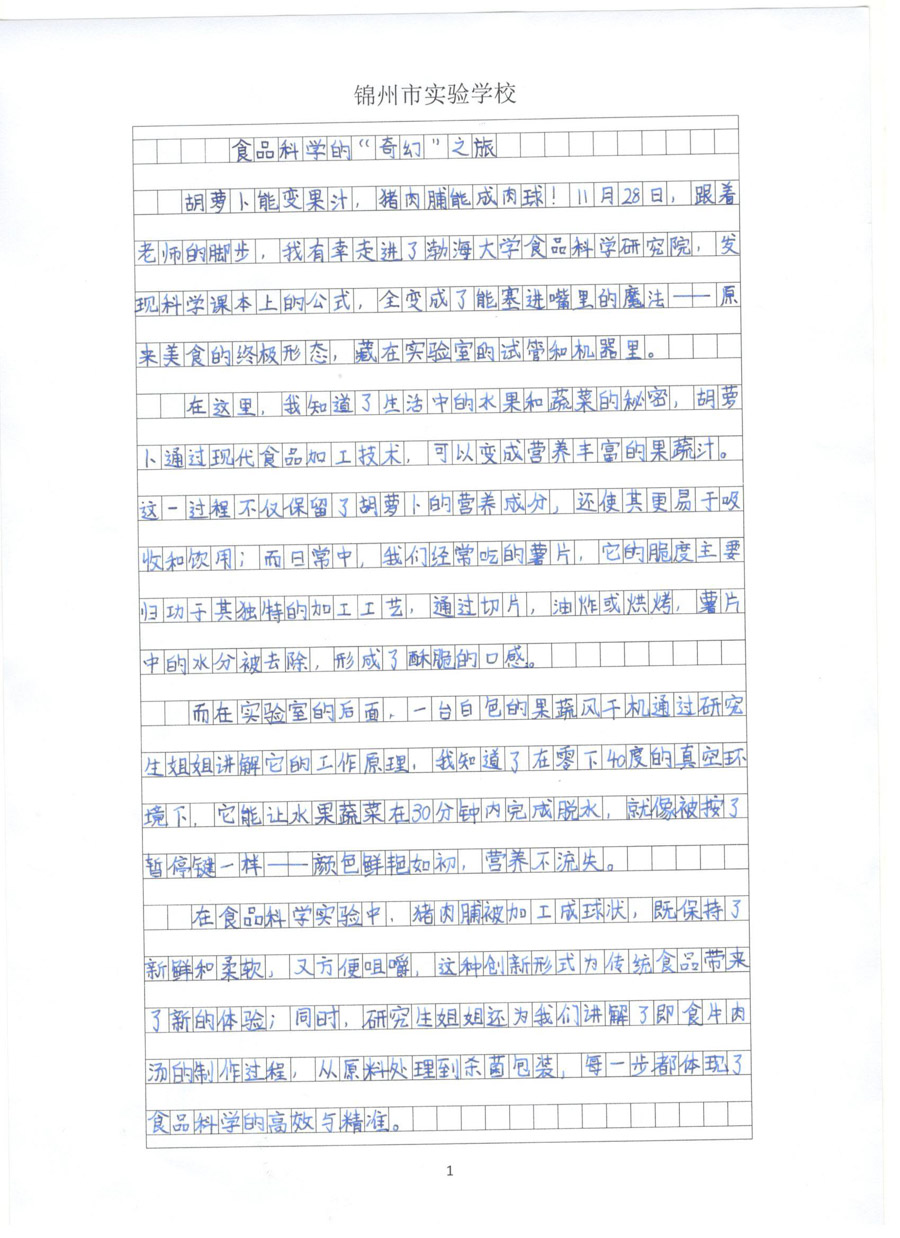 锦州市实验学校
食品科学的“奇幻”之旅
胡萝卜能变果汁，猪肉脯能成肉球！11月28日，跟着
老师的脚步，我有幸走进了渤海大学食品科学研究院，发
现科学课本上的公式，全变成了能塞进嘴里的魔法——原
来美食的终极形态，藏在实验室的试管和机器里。
在这里，我知道了生活中的水果和蔬菜的秘密，胡萝
卜通过现代食品加工技术，可以变成营养丰富的果蔬汁。
这一过程不仅保留了胡萝卜的营养成分，还使其更易于吸
收和饮用；而日常中，我们经常吃的薯片，它的脆度主要
归功于其独特的加工工艺，通过切片，油炸或烘烤，薯片
中的水分被去除，形成了酥脆的口感。
而在实验室的后面，一台白包的果蔬风干机通过研究
生姐姐讲解它的工作原理，我知道了在零下40度的真空环
境下，它能让水果蔬菜在30分钟内完成脱水，就像被按了
暂停键一样——颜色鲜艳如初，营养不流失。
在食品科学实验中，猪肉脯被加工成球状，既保持了
新鲜和柔软，又方便咀嚼，这种创新形式为传统食品带来
了新的体验；同时，研究生姐姐还为我们讲解了即食牛肉
汤的制作过程，从原料处理到杀菌包装，每一步都体现了
食品科学的高效与精准。
1